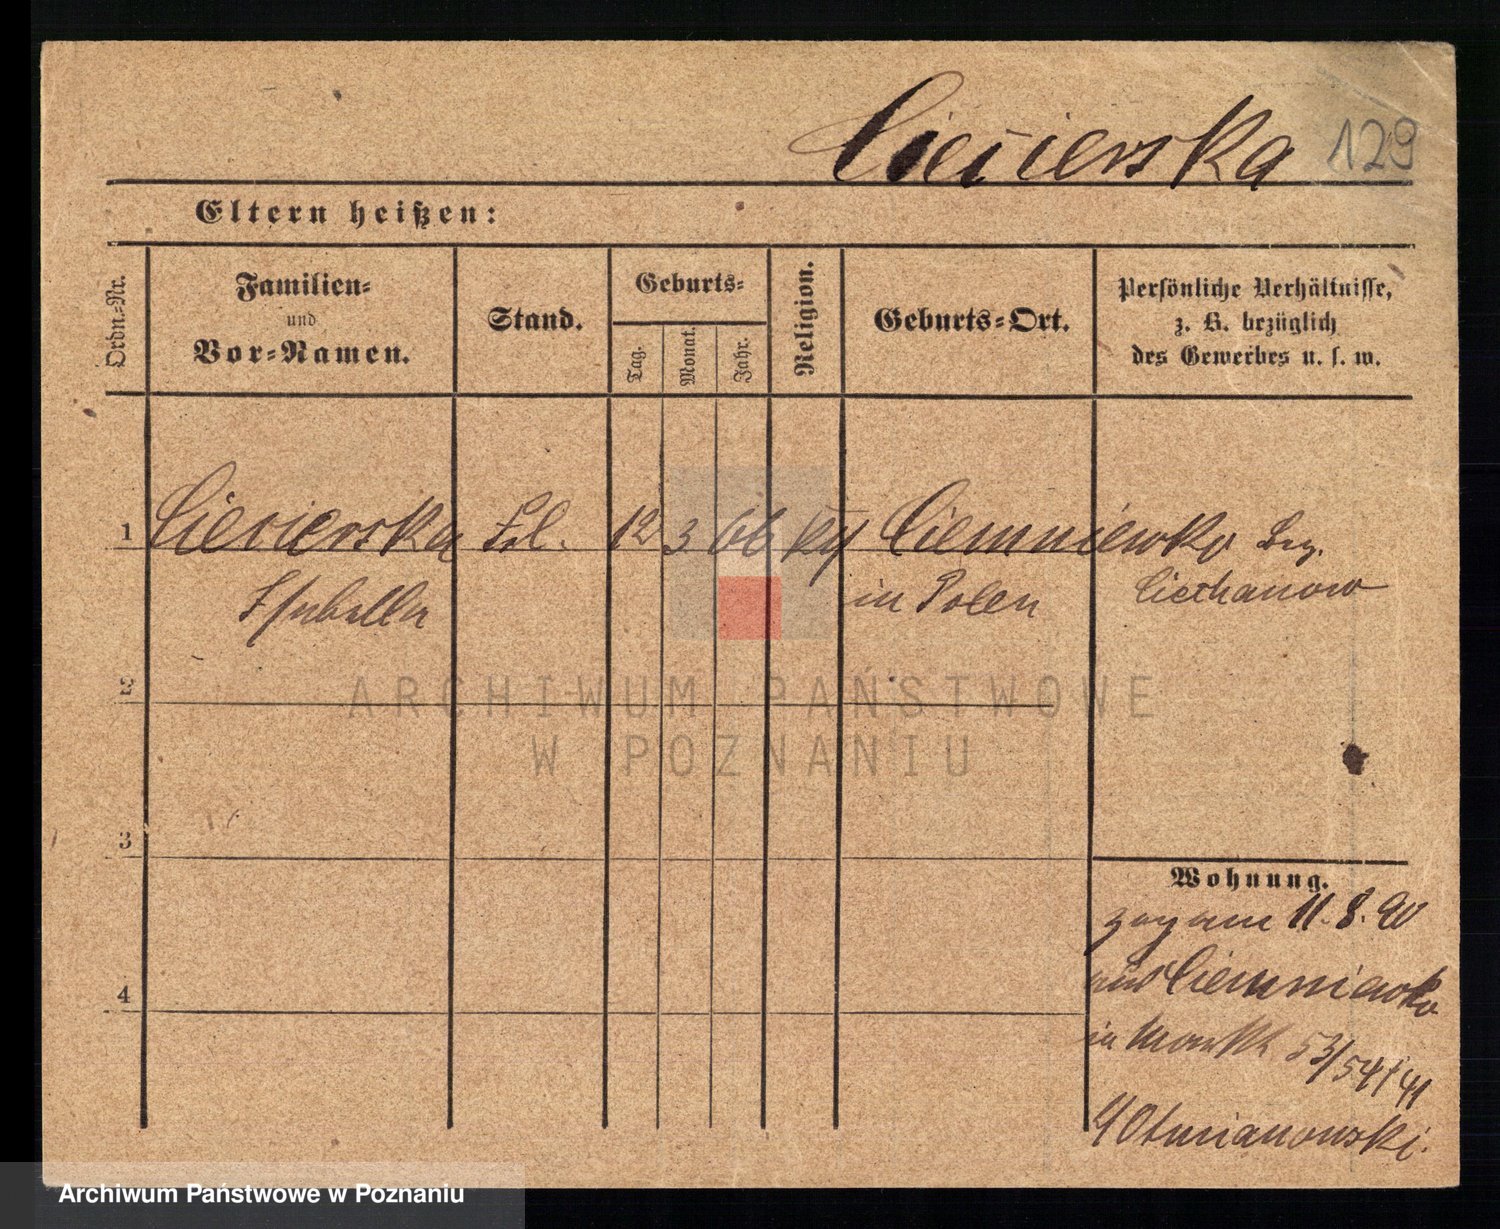 Ciecierska 129
Eltern heißen:
Ordn.-Nr.
Familien-
und
Vor-Namen.
Stand.
Geburts-
Tag.
Monat.
Jahr.
Religion.
Geburts-Ort.
Persönliche Verhältnisse,
z. B. bezüglich
des Gewerbes u. s. w.
1 Ciecierska Frl. 12 3 66 Ciemniewko Bez.
Isabella in Polen Ciechanow
2
3
4
Wohnung.
zog am 11.8.90
aus Ciemniewko
in Markt 53/54
Otmianowski.
ARCHIWUM PAŃSTWOWE
W POZNANIU
Archiwum Państwowe w Poznaniu